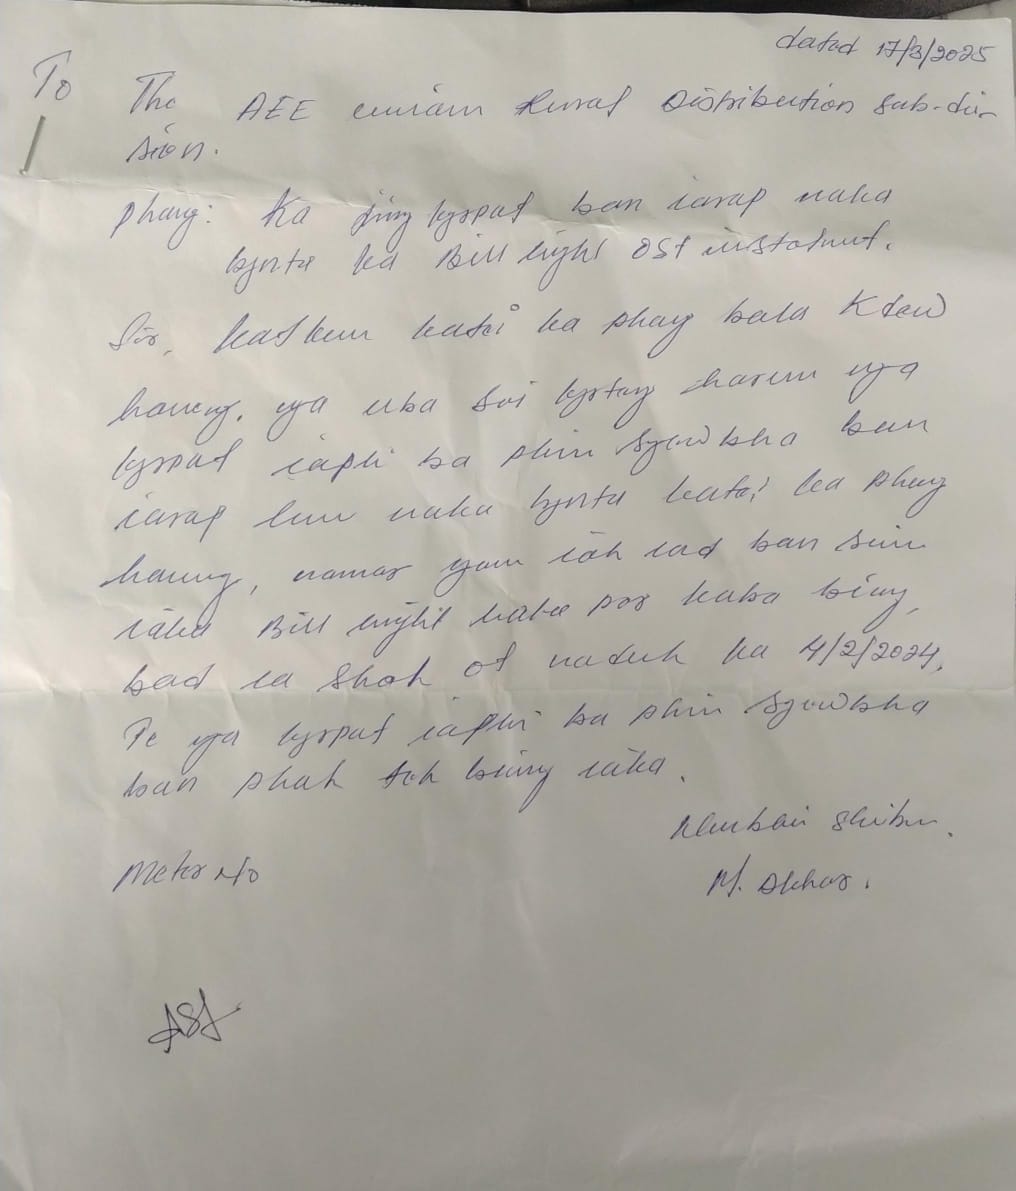 dated 17/3/2025
To
The AEE umiam Rural Distribution Sub-divi-
sion.
phang: Ka jing kyrpad ban iarap naka
bynta ka Bill light OST instalment.
Sir, kat kum katei ka phang bala Kdew
haneng. nga uba soi kyrteng harum nga
kyrpad iaphi ba phin sngewbha ban
iarap lem naka bynta katei ka phang
haneng, namar ngam ioh lad ban siew
iaka Bill light haba por kaba biang,
bad la Shah of naduh ka 4/2/2024.
Te nga kyrpad iaphi ba phin sngewbha
ban phah teh biang iaka.
M. Dkhar.
Meter No